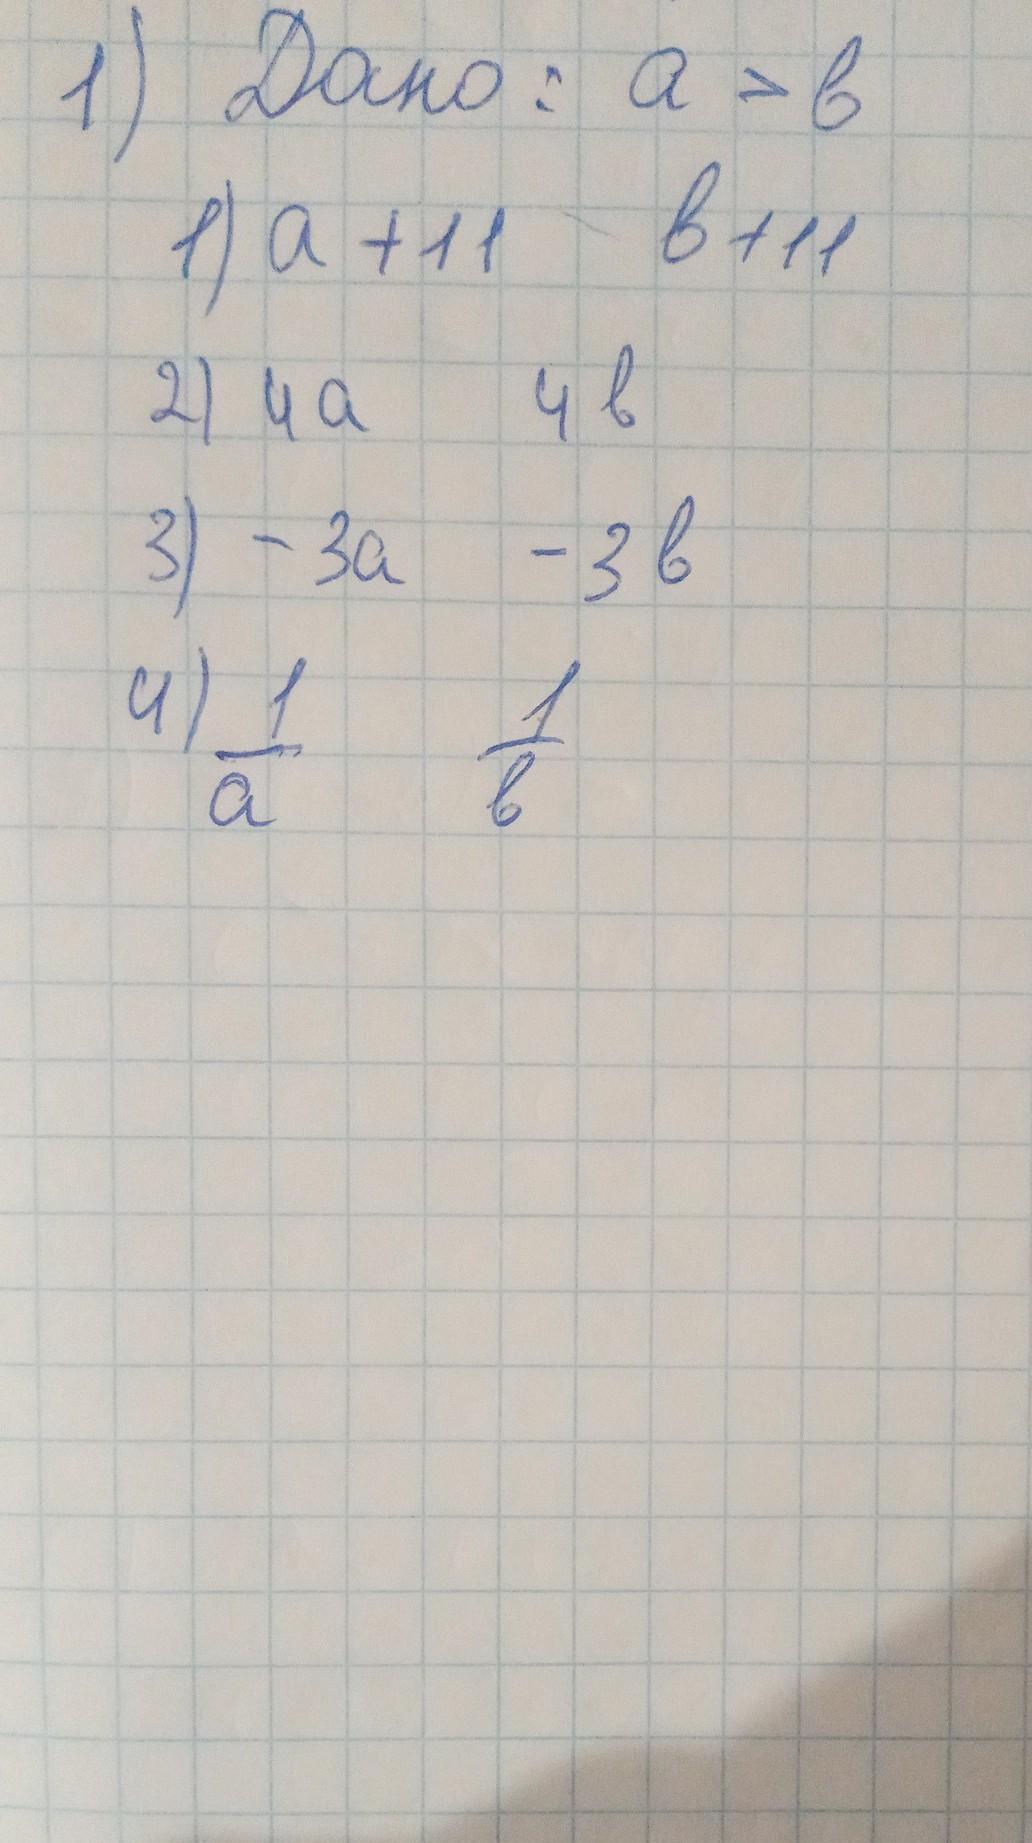 1) Дано: a > b
1) a + 11 b + 11
2) 4a 4b
3) - 3a - 3b
4) 1/a 1/b